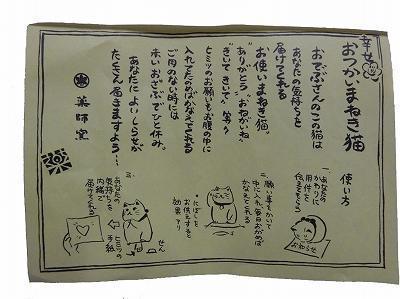 幸せ
おつかいまねき猫
おでぶさんのこの猫は
あなたの気持ちを
届けてくれる
お使いまねき猫。
ありがとう おねがいね
きいて きいて 等々
ヒミツのお願いもお腹の中に
入れてたのめばかなえてくれる
ご用のない時には
赤いおざぶでひと休み。
あなたによいしらせが
たくさん届きますよう…
薬師窯
使い方
一、
あなたの
かわりに
用件を
伝えてもらう
お知らせ
二、
願い事をかいて
中に入れ毎日おがめば
かなえてくれる
*にぼしを
お供えすると
効果アリ
三、
あなたの
気持ちを
内緒で
届けてくれる
せん
ヒミツの
手紙